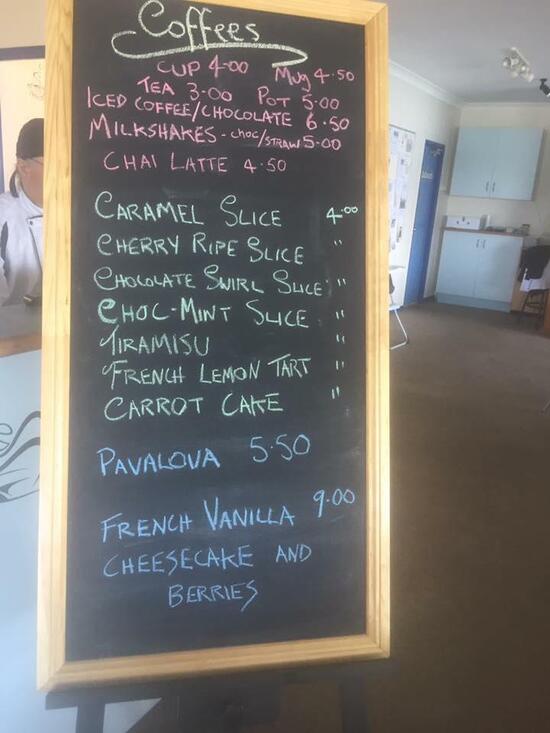 Coffees
CUP 4-00 Mug 4.50
TEA 3-00 POT 5-00
ICED COFFEE/CHOCOLATE 6.50
MILKSHAKES - choc/STRAW 5-00
CHAI LATTE 4.50
CARAMEL SLICE 4.00
CHERRY RIPE SLICE "
CHOCOLATE SWIRL SLICE "
CHOC-MINT SLICE "
TIRAMISU "
FRENCH LEMON TART "
CARROT CAKE "
PAVALOVA 5.50
FRENCH VANILLA 9.00
CHEESECAKE AND
BERRIES